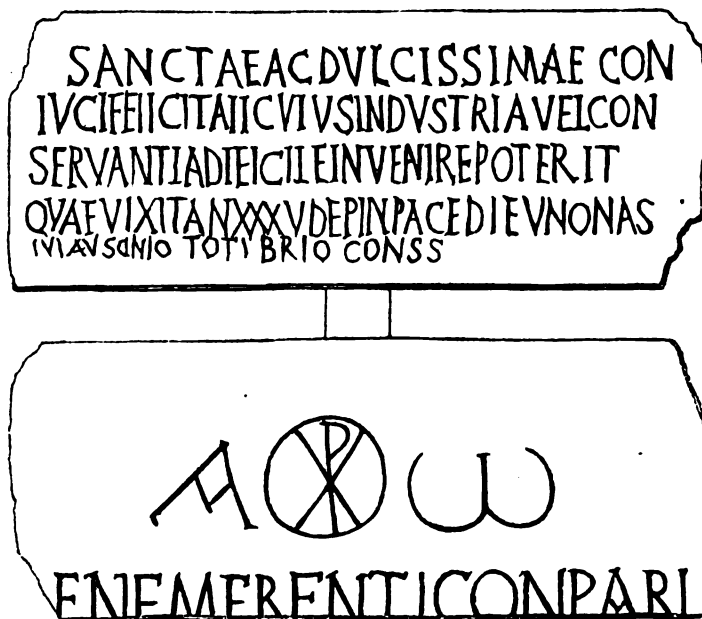 SANCTAEACDVLCISSIMAE CON
IVCIFELICITATICVIVSINDVSTRIAVELCON
SERVANTIADIFICILEINVENIREPOTERIT
QVAEVIXITANXXXVDEPINPACEDIEVNONAS
IVLAVSONIO TOTI BRIO CONSS
A ☧ Ѡ
ENEMERENTICONPARI